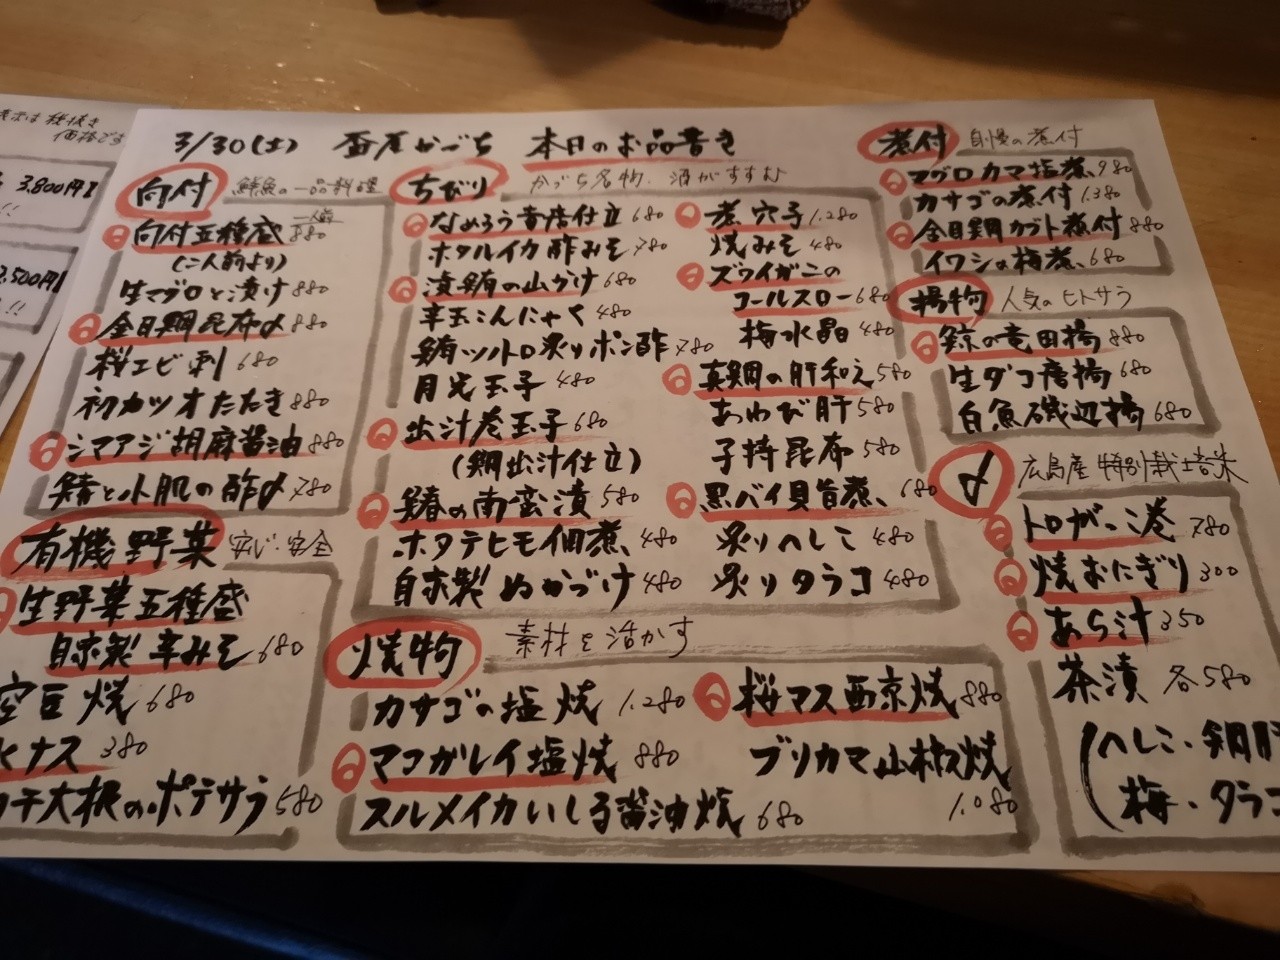 表示は税抜き
価格です
3,800円
!!
,500円
!!
3/30(土) 酒肴かづち 本日のお品書き
向付 鮮魚の一品料理
向付五種盛 一人前 880
(二人前より)
生マグロと漬け 880
金目鯛昆布〆 880
桜エビ刺 680
初カツオたたき 880
シマアジ胡麻醤油 880
鯖と小肌の酢〆 780
有機野菜 安心・安全
生野菜五種盛
自家製辛みそ 680
空豆焼 680
ナス 380
大根のポテサラ 580
ちびり かづち名物、酒がすすむ
なめろう書店仕立 680
ホタルイカ酢みそ 780
漬鮪の山かけ 680
辛玉こんにゃく 480
鮪ツナトロ炙りポン酢 780
月光玉子 480
出汁巻玉子 680
(鯛出汁仕立)
鰆の南蛮漬 580
ホタテヒモ佃煮 480
自家製ぬかづけ 480
煮穴子 1.280
焼みそ 480
ズワイガニの
コールスロー 680
梅水晶 480
真鯛の肝和え 580
あわび肝 580
子持昆布 580
黒バイ貝旨煮 680
炙りへしこ 480
炙りタラコ 480
焼物 素材を活かす
カサゴの塩焼 1.280
マコガレイ塩焼 880
スルメイカいしる醤油焼 680
桜マス西京焼 880
ブリカマ山椒焼
1.080
煮付 自慢の煮付
マグロカマ塩煮 980
カサゴの煮付 1.380
金目鯛カブト煮付 880
イワシの梅煮 680
揚物 人気のヒトサラ
鯨の竜田揚 880
生ダコ唐揚 680
白魚磯辺揚 680
〆 広島産 特別栽培米
トロがっこ巻 780
焼おにぎり 300
あら汁 350
茶漬 各580
(へしこ・鯛
梅・タラコ